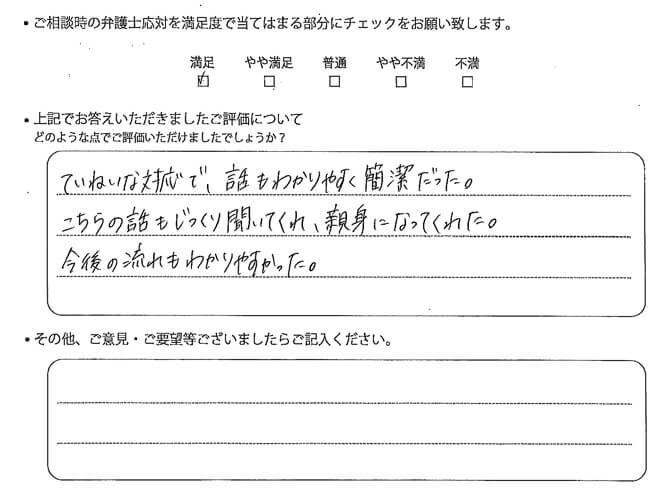 • ご相談時の弁護士応対を満足度で当てはまる部分にチェックをお願い致します。
満足 やや満足 普通 やや不満 不満
☑ ☐ ☐ ☐ ☐
• 上記でお答えいただきましたご評価について
どのような点でご評価いただけましたでしょうか？
ていねいな対応で、話もわかりやすく簡潔だった。
こちらの話もじっくり聞いてくれ、親身になってくれた。
今後の流れもわかりやすかった。
• その他、ご意見・ご要望等ございましたらご記入ください。